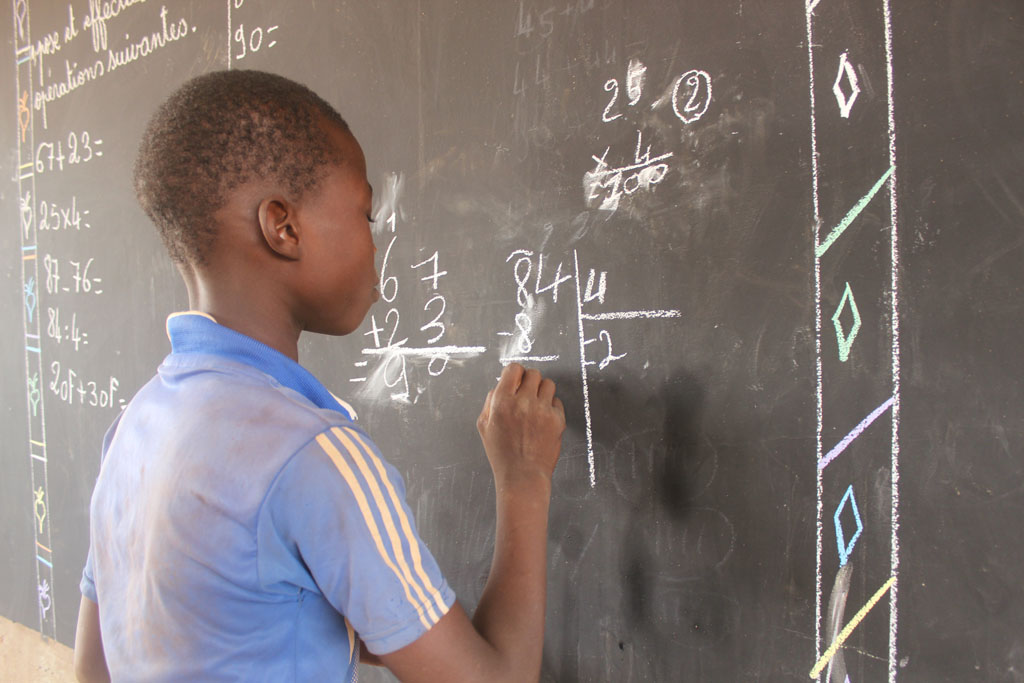 et
opérations suivantes.
90=
67+23=
25x4=
87-76=
84:4=
20F+30F=
25 ②
x 4
= 100
1
67
+23
= 90
84 4
-8 2